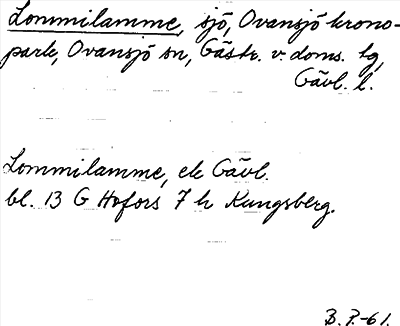 Lommilamme, sjö, Ovansjö krono-
park, Ovansjö sn, Gästr. v. doms. tg,
Gävl. l.
Lommilamme, ek Gävl.
bl. 13 G Hofors 7 h Kungsberg.
B. P.-61.